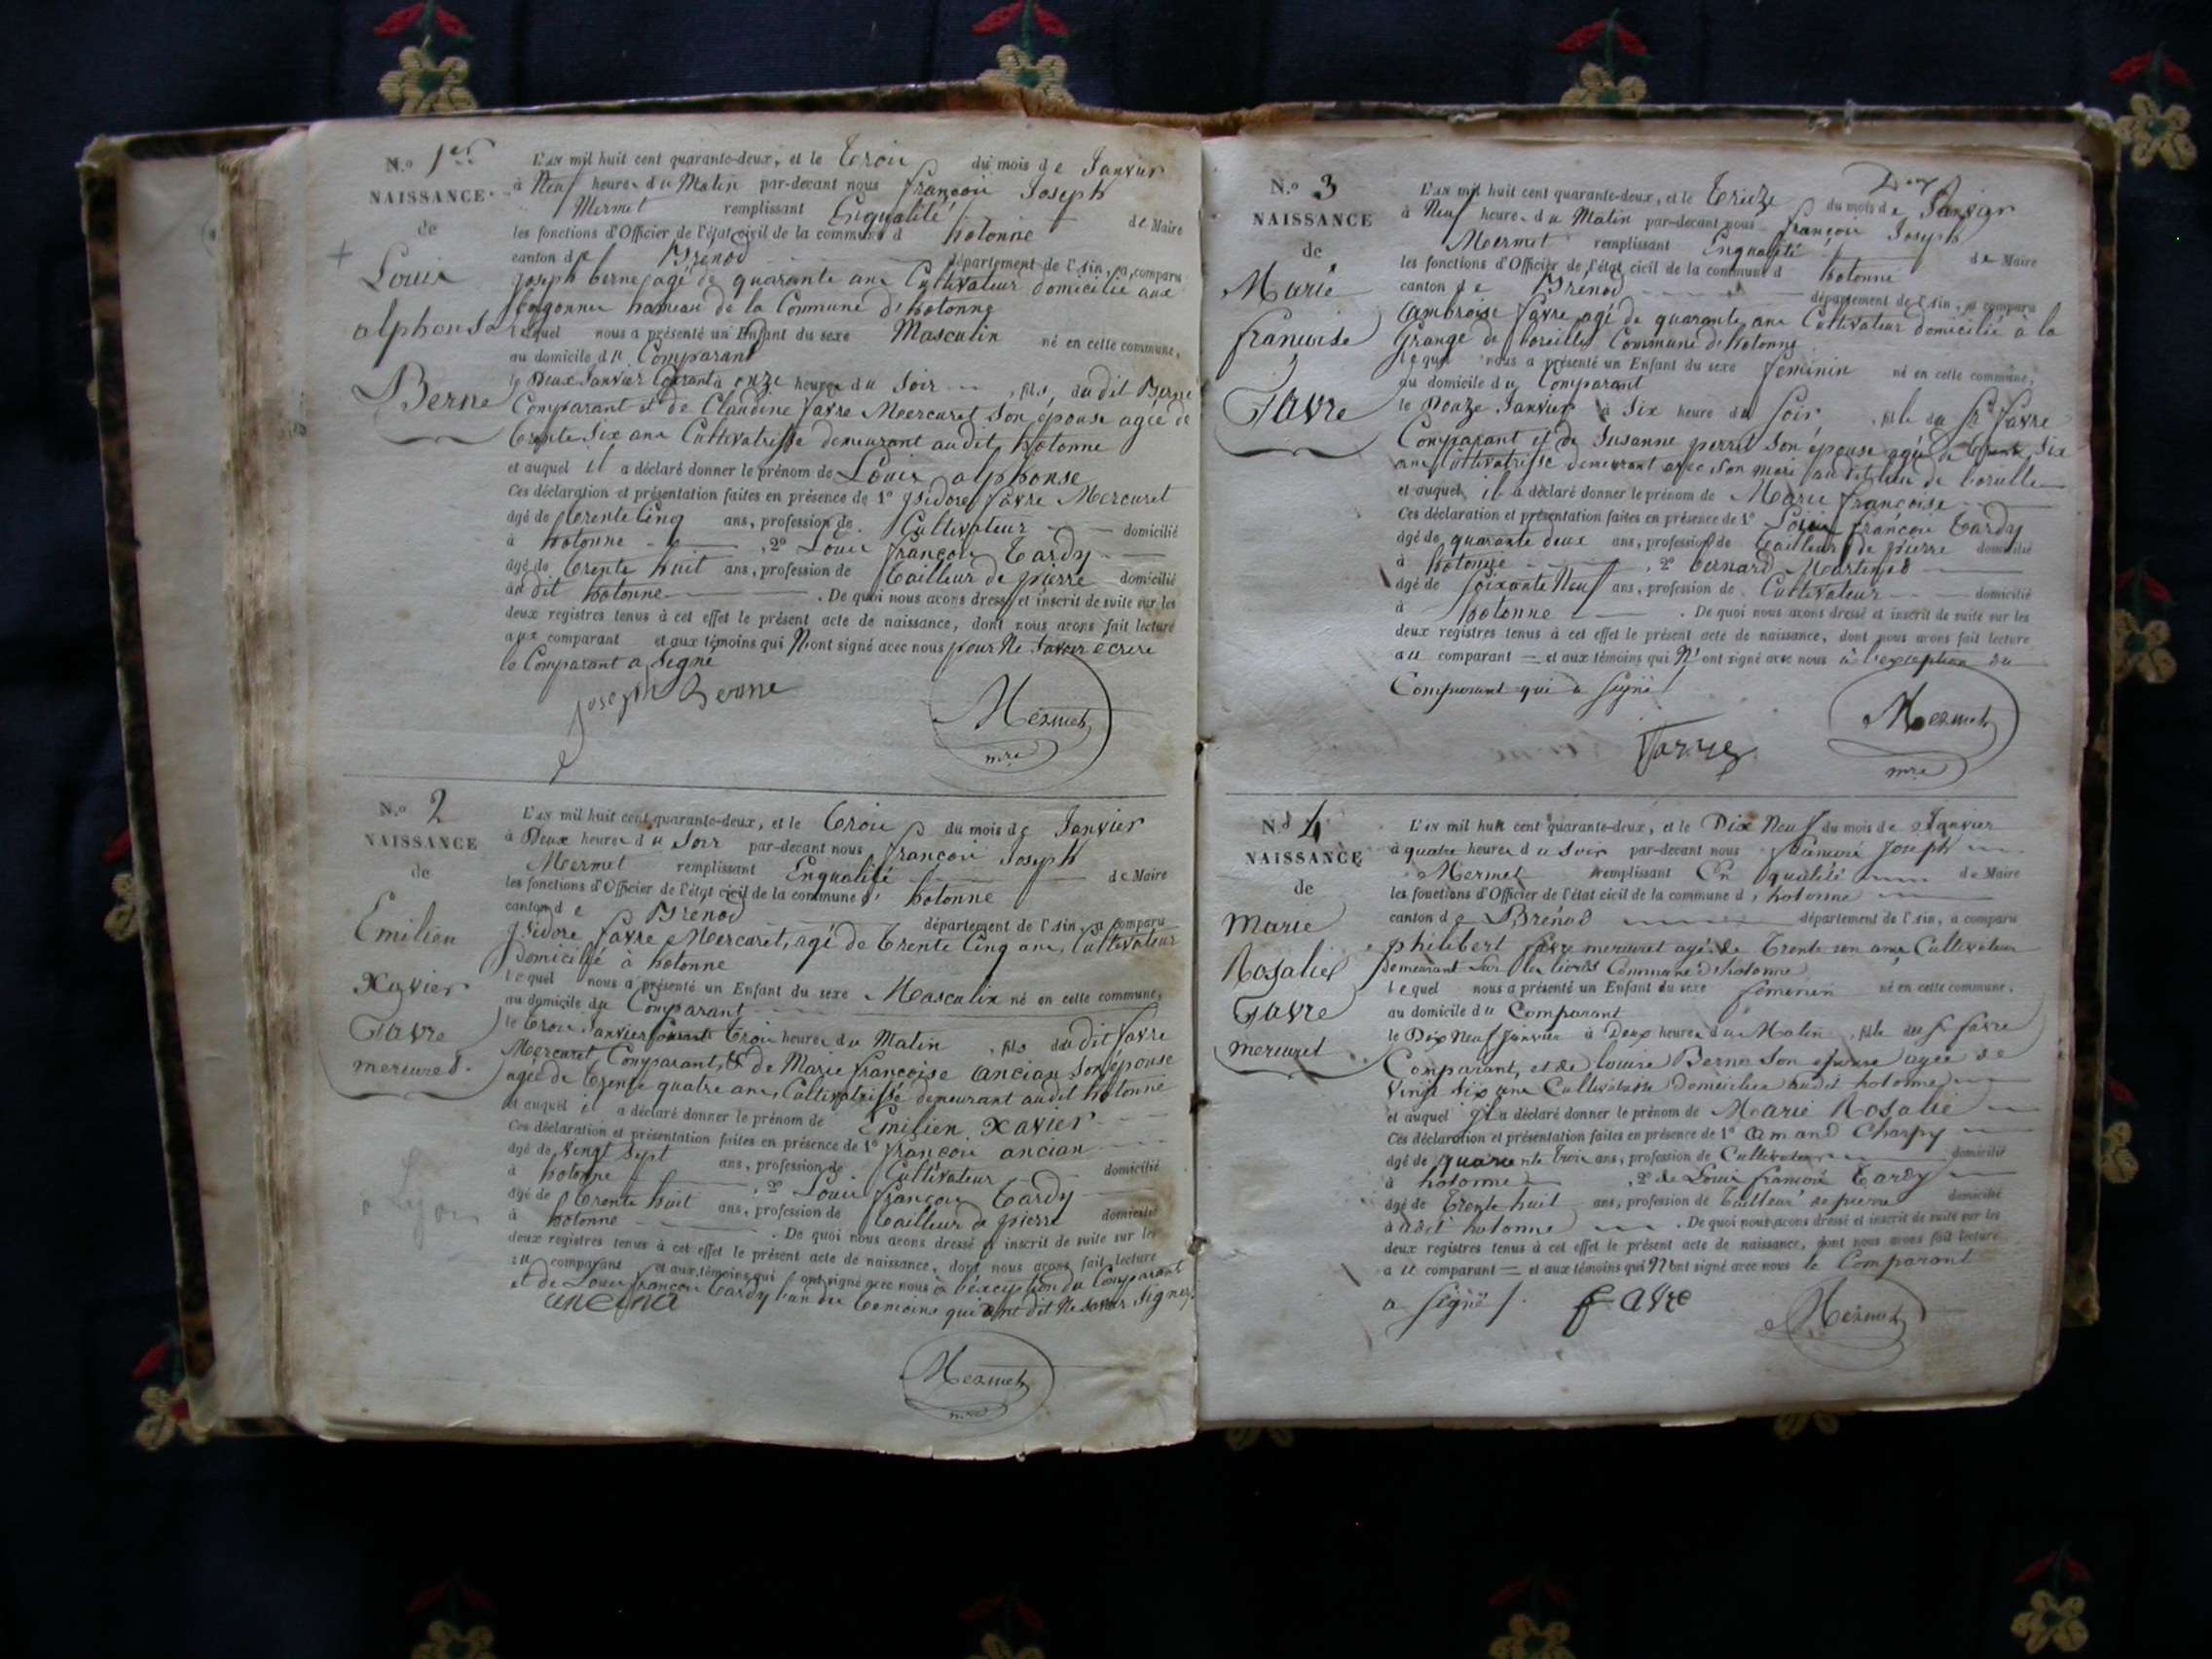 N.o 1er
NAISSANCE
de
Louis
alphonse
Berne
L'AN mil huit cent quarante-deux, et le Trois du mois de Janvier
à Neuf heures du Matin par-devant nous françois Joseph
Mermet remplissant Enqualité de Maire
les fonctions d'Officier de l'état civil de la commune d hotonne
canton de Brenod département de l'Ain, a comparu
joseph berne agé de quarante ans Cultivateur domicilié aux
hameau de la Commune d'hotonne
lequel nous a présenté un Enfant du sexe Masculin né en cette commune,
au domicile du Comparant
le Deux Janvier Courant à onze heures du Soir fils du dit Berne
Comparant et de Claudine favre Mercuret Son épouse agée de
trente Six ans Cultivatrisse demeurant audit hotonne
et auquel il a déclaré donner le prénom de Louis alphonse
Ces déclaration et présentation faites en présence de 1º isidore favre Mercuret
âgé de trente Cinq ans, profession de Cultivateur domicilié
à hotonne , 2º Louis françois tardy
âgé de trente huit ans, profession de tailleur de pierre domicilié
audit hotonne . De quoi nous avons dressé et inscrit de suite sur les
deux registres tenus à cet effet le présent acte de naissance, dont nous avons fait lecture
aux comparant et aux témoins qui Nont signé avec nous pour Ne Savoir ecrire
le Comparant a Signé
joseph Berne
Mermet
mre
N.o 2
NAISSANCE
de
Emilien
Xavier
Favre
mercuret
L'AN mil huit cent quarante-deux, et le trois du mois de Janvier
à Deux heures du Soir par-devant nous françois Joseph
Mermet remplissant Enqualité de Maire
les fonctions d'Officier de l'état civil de la commune d' hotonne
canton de Brenod département de l'Ain, a comparu
isidore favre Mercuret, agé de trente Cinq ans, Cultivateur
domicilié à hotonne
lequel nous a présenté un Enfant du sexe Masculin né en cette commune,
au domicile du Comparant
le trois Janvier Courant trois heures du Matin , fils du dit favre
Mercuret, Comparant, & de Marie françoise ancian Son épouse
agée de trente quatre ans, Cultivatrisse demeurant audit hotonne
et auquel il a déclaré donner le prénom de Emilien Xavier
Ces déclaration et présentation faites en présence de 1º françois ancian
âgé de Vingt Sept ans, profession de Cultivateur domicilié
à hotonne , 2º Louis françois tardy
âgé de trente huit ans, profession de tailleur de pierre domicilié
à hotonne . De quoi nous avons dressé et inscrit de suite sur les
deux registres tenus à cet effet le présent acte de naissance, dont nous avons fait lecture
au comparant et aux témoins qui ont signé avec nous à l'exception du Comparant
et de Louis françois tardy l'un des temoins qui ont dit Ne Savoir Signer.
Mermet
mre
N.o 3
NAISSANCE
de
Marie
francoise
Favre
L'AN mil huit cent quarante-deux, et le treize du mois de Janvier
à Neuf heures du Matin par-devant nous françois Joseph
Mermet remplissant Enqualité de Maire
les fonctions d'Officier de l'état civil de la commune d hotonne
canton de Brenod département de l'Ain, a comparu
ambroise favre agé de quarante ans Cultivateur domicilié à la
Grange de Commune d'hotonne
lequel nous a présenté un Enfant du sexe feminin né en cette commune,
au domicile du Comparant
le Douze Janvier à Six heures du Soir , fille du Sr favre
Comparant et de Susanne perret Son épouse agée de trente Six
ans Cultivatrisse demeurant avec Son mari audit lieu de
et auquel il a déclaré donner le prénom de Marie françoise
Ces déclaration et présentation faites en présence de 1º Louis françois tardy
âgé de quarante deux ans, profession de tailleur de pierre domicilié
à hotonne , 2º bernard Martinod
âgé de Soixante Neuf ans, profession de Cultivateur domicilié
à hotonne . De quoi nous avons dressé et inscrit de suite sur les
deux registres tenus à cet effet le présent acte de naissance, dont nous avons fait lecture
au comparant et aux témoins qui N'ont signé avec nous à l'exception du
Comparant qui a Signé
Favre
Mermet
mre
N.o 4
NAISSANCE
de
Marie
Rosalie
Favre
mercuret
L'AN mil huit cent quarante-deux, et le Dix Neuf du mois de Janvier
à quatre heures du Soir par-devant nous francois Joseph
Mermet remplissant En qualité de Maire
les fonctions d'Officier de l'état civil de la commune d' hotonne
canton de Brénod département de l'Ain, a comparu
philibert favre mercuret agé de trente ans Cultivateur
demeurant Sur Commune d'hotonne
lequel nous a présenté un Enfant du sexe femenin né en cette commune,
au domicile du Comparant
le Dix Neuf Janvier à Deux heures du Matin , fille du Sr favre
Comparant, et de louise Berne Son epouse agée de
Vingt Six ans Cultivatrisse Domiciliée audit hotonne
et auquel il a déclaré donner le prénom de Marie Rosalie
Ces déclaration et présentation faites en présence de 1º amand Charpy
âgé de quarante trois ans, profession de Cultivateur domicilié
à hotonne , 2º de Louis francois tardy
âgé de trente huit ans, profession de tailleur de pierre domicilié
à udit hotonne . De quoi nous avons dressé et inscrit de suite sur les
deux registres tenus à cet effet le présent acte de naissance, dont nous avons fait lecture
au comparant et aux témoins qui N'ont signé avec nous le Comparant
a Signé favre
Mermet